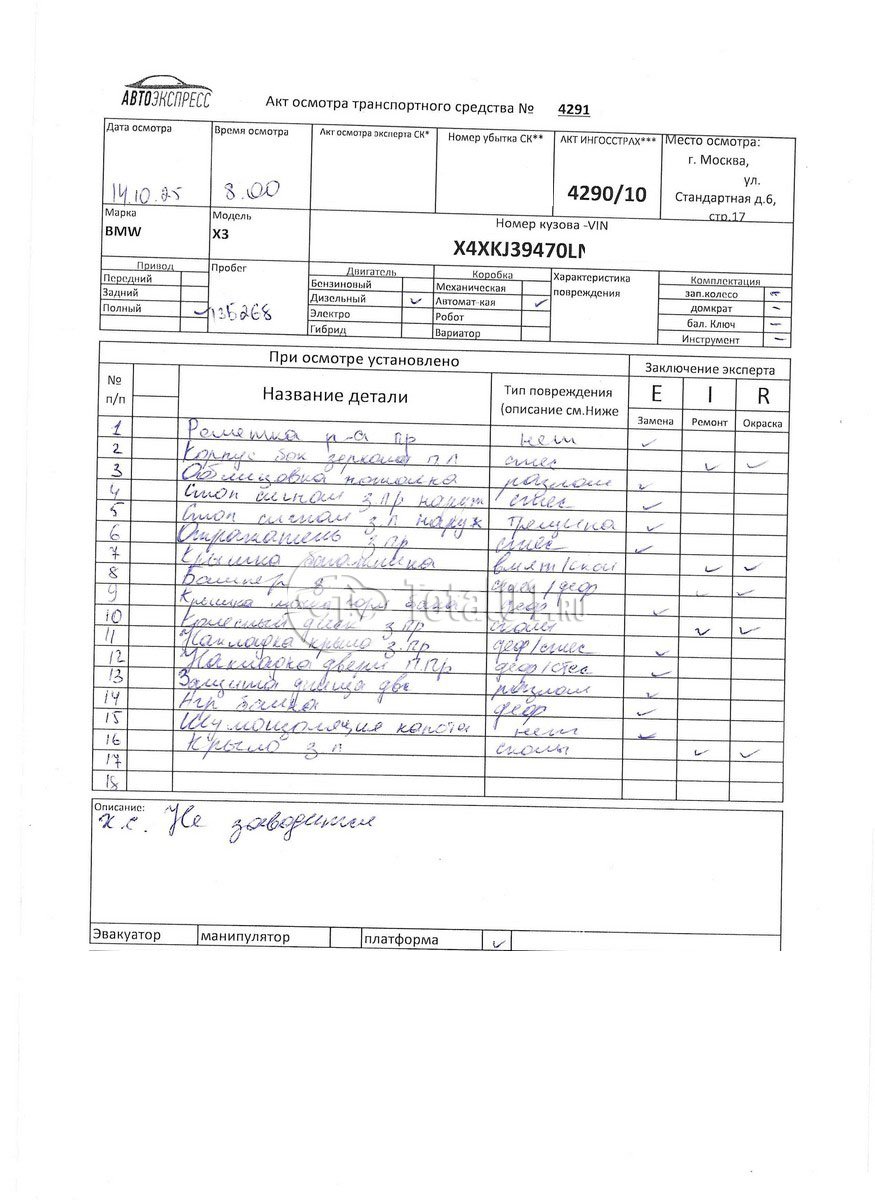 АВТОЭКСПРЕСС
Акт осмотра транспортного средства № 4291
Дата осмотра
Время осмотра
Акт осмотра эксперта СК*
Номер убытка СК**
АКТ ИНГОССТРАХ***
Место осмотра:
г. Москва,
ул.
Стандартная д.6,
стр.17
14.10.25
8.00
4290/10
Марка
BMW
Модель
X3
Номер кузова -VIN
X4XKJ39470L
Привод
Пробег
Двигатель
Коробка
Характеристика
повреждения
Комплектация
Передний
Задний
Полный
135268
Бензиновый
Дизельный
Электро
Гибрид
Механическая
Автомат-кая
Робот
Вариатор
зап.колесо
домкрат
бал. Ключ
Инструмент
При осмотре установлено
Заключение эксперта
№
п/п
Название детали
Тип повреждения
(описание см.Ниже
E I R
Замена Ремонт Окраска
1 Решетка р-а пр нет
2 Корпус бок зеркала п л спес
3 Облицовка потолка разлом
4 Стоп сигнал з пр наруж спес
5 Стоп сигнал з л наруж трещина
6 Отражатель з пр спес
7 Крышка багажника вмят/скол
8 Бампер з /деф
9 Крышка деф
10 Колесный диск з пр сколы
11 Накладка крыло з.пр деф/спес
12 Накладка двери п.пр деф/спес
13 Защита днища разлом
14 деф
15 Шумоизоляция капота нет
16 Крыло з л сколы
17
18
Описание:
х.с. Не заводится
Эвакуатор
манипулятор
платформа
Total01.RU